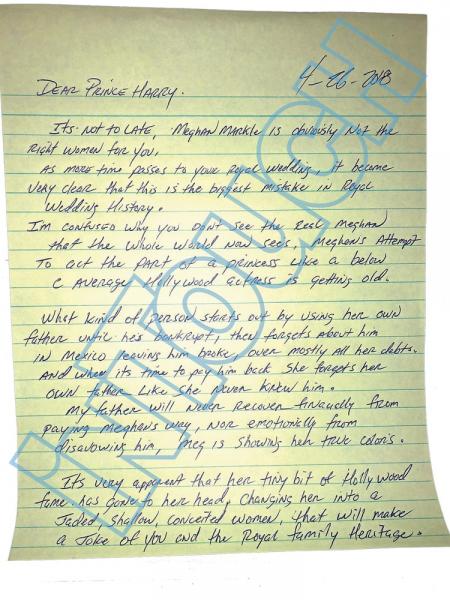 4-26-2018
DEAR PRINCE HARRY.
ITS NOT TO LATE, MEGHAN MARKLE IS obviously Not the
Right Women for you,
AS MORE time passes to your Royal wedding, it became
very clear that this is the biggest mistake in Royal
Wedding History.
I'm confused why you don't see the Real Meghan
that the whole world now sees, Meghan's Attempt
To act the part of a princess like a below
C average Hollywood actress is getting old.
What kind of person starts out by using her own
father until he's bankrupt, then forgets about him
in Mexico leaving him broke, over mostly all her debts.
And when its time to pay him back she forgets her
own father like she never knew him.
My father will never recover financially from
paying Meghans way, nor emotionally from
disavowing him, Meg is showing her true colors.
It's very apparent that her tiny bit of Hollywood
fame has gone to her head, Changing her into a
Jaded, shallow, conceited women, that will make
a Joke of you and the Royal family Heritage.
InTouch